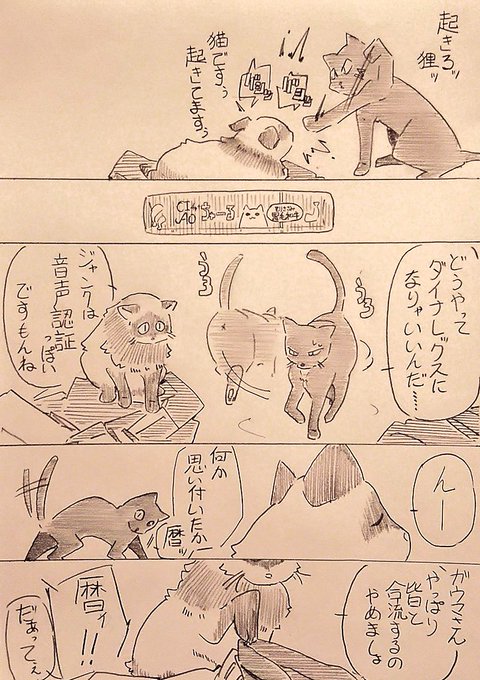 起きろッ
狸ッ
猫ですぅ
起きてますぅ
CIAO
ちゅーる
どうやって
ダイナレックスに
なりゃいいんだ……
うろ
うろ
ジャンクは
音声認証
っぽい
ですもんね
んー
何か
思い付いたかー
暦ッ
ガウマさん
やっぱり
皆と
合流するの
やめましょ
暦ィ!!
だぁってぇ